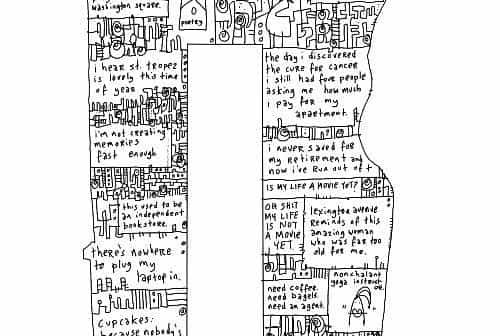 washington square.
poetry
i hear st. tropez
is lovely this time
of year
i'm not creating
memories
fast enough
this used to be
an independent
bookstore.
there's nowhere
to plug my
laptop in.
cupcakes:
because nobody's
the day i discovered
the cure for cancer
i still had four people
asking me how much
i pay for my
apartment.
i never saved for
my retirement and
now i've run out of t
IS MY LIFE A MOVIE YET?
OH SHIT
MY LIFE
IS NOT
A MOVIE
YET
lexington avenue
reminds of this
amazing woman
who was far too
old for me.
need coffee.
need bagels.
need an agent.
nonchalant
yoga instructor